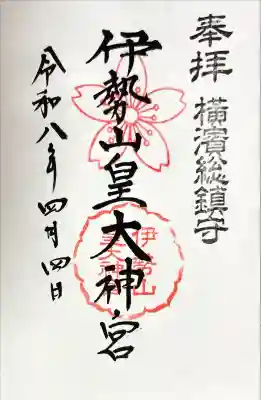 奉拝 横濱総鎮守
伊勢山皇大神宮
伊勢山
皇大神宮
令和八年四月四日